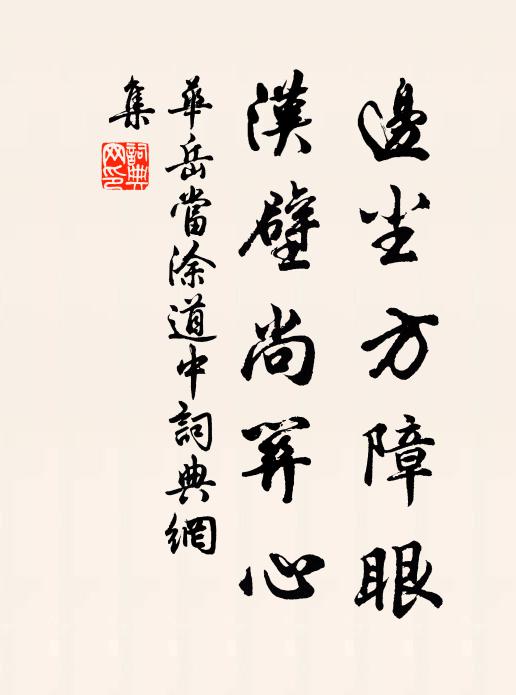 邊尘方障眼
漢壁尚關心
華岳當涂道中詞典網
集
詞典
网印